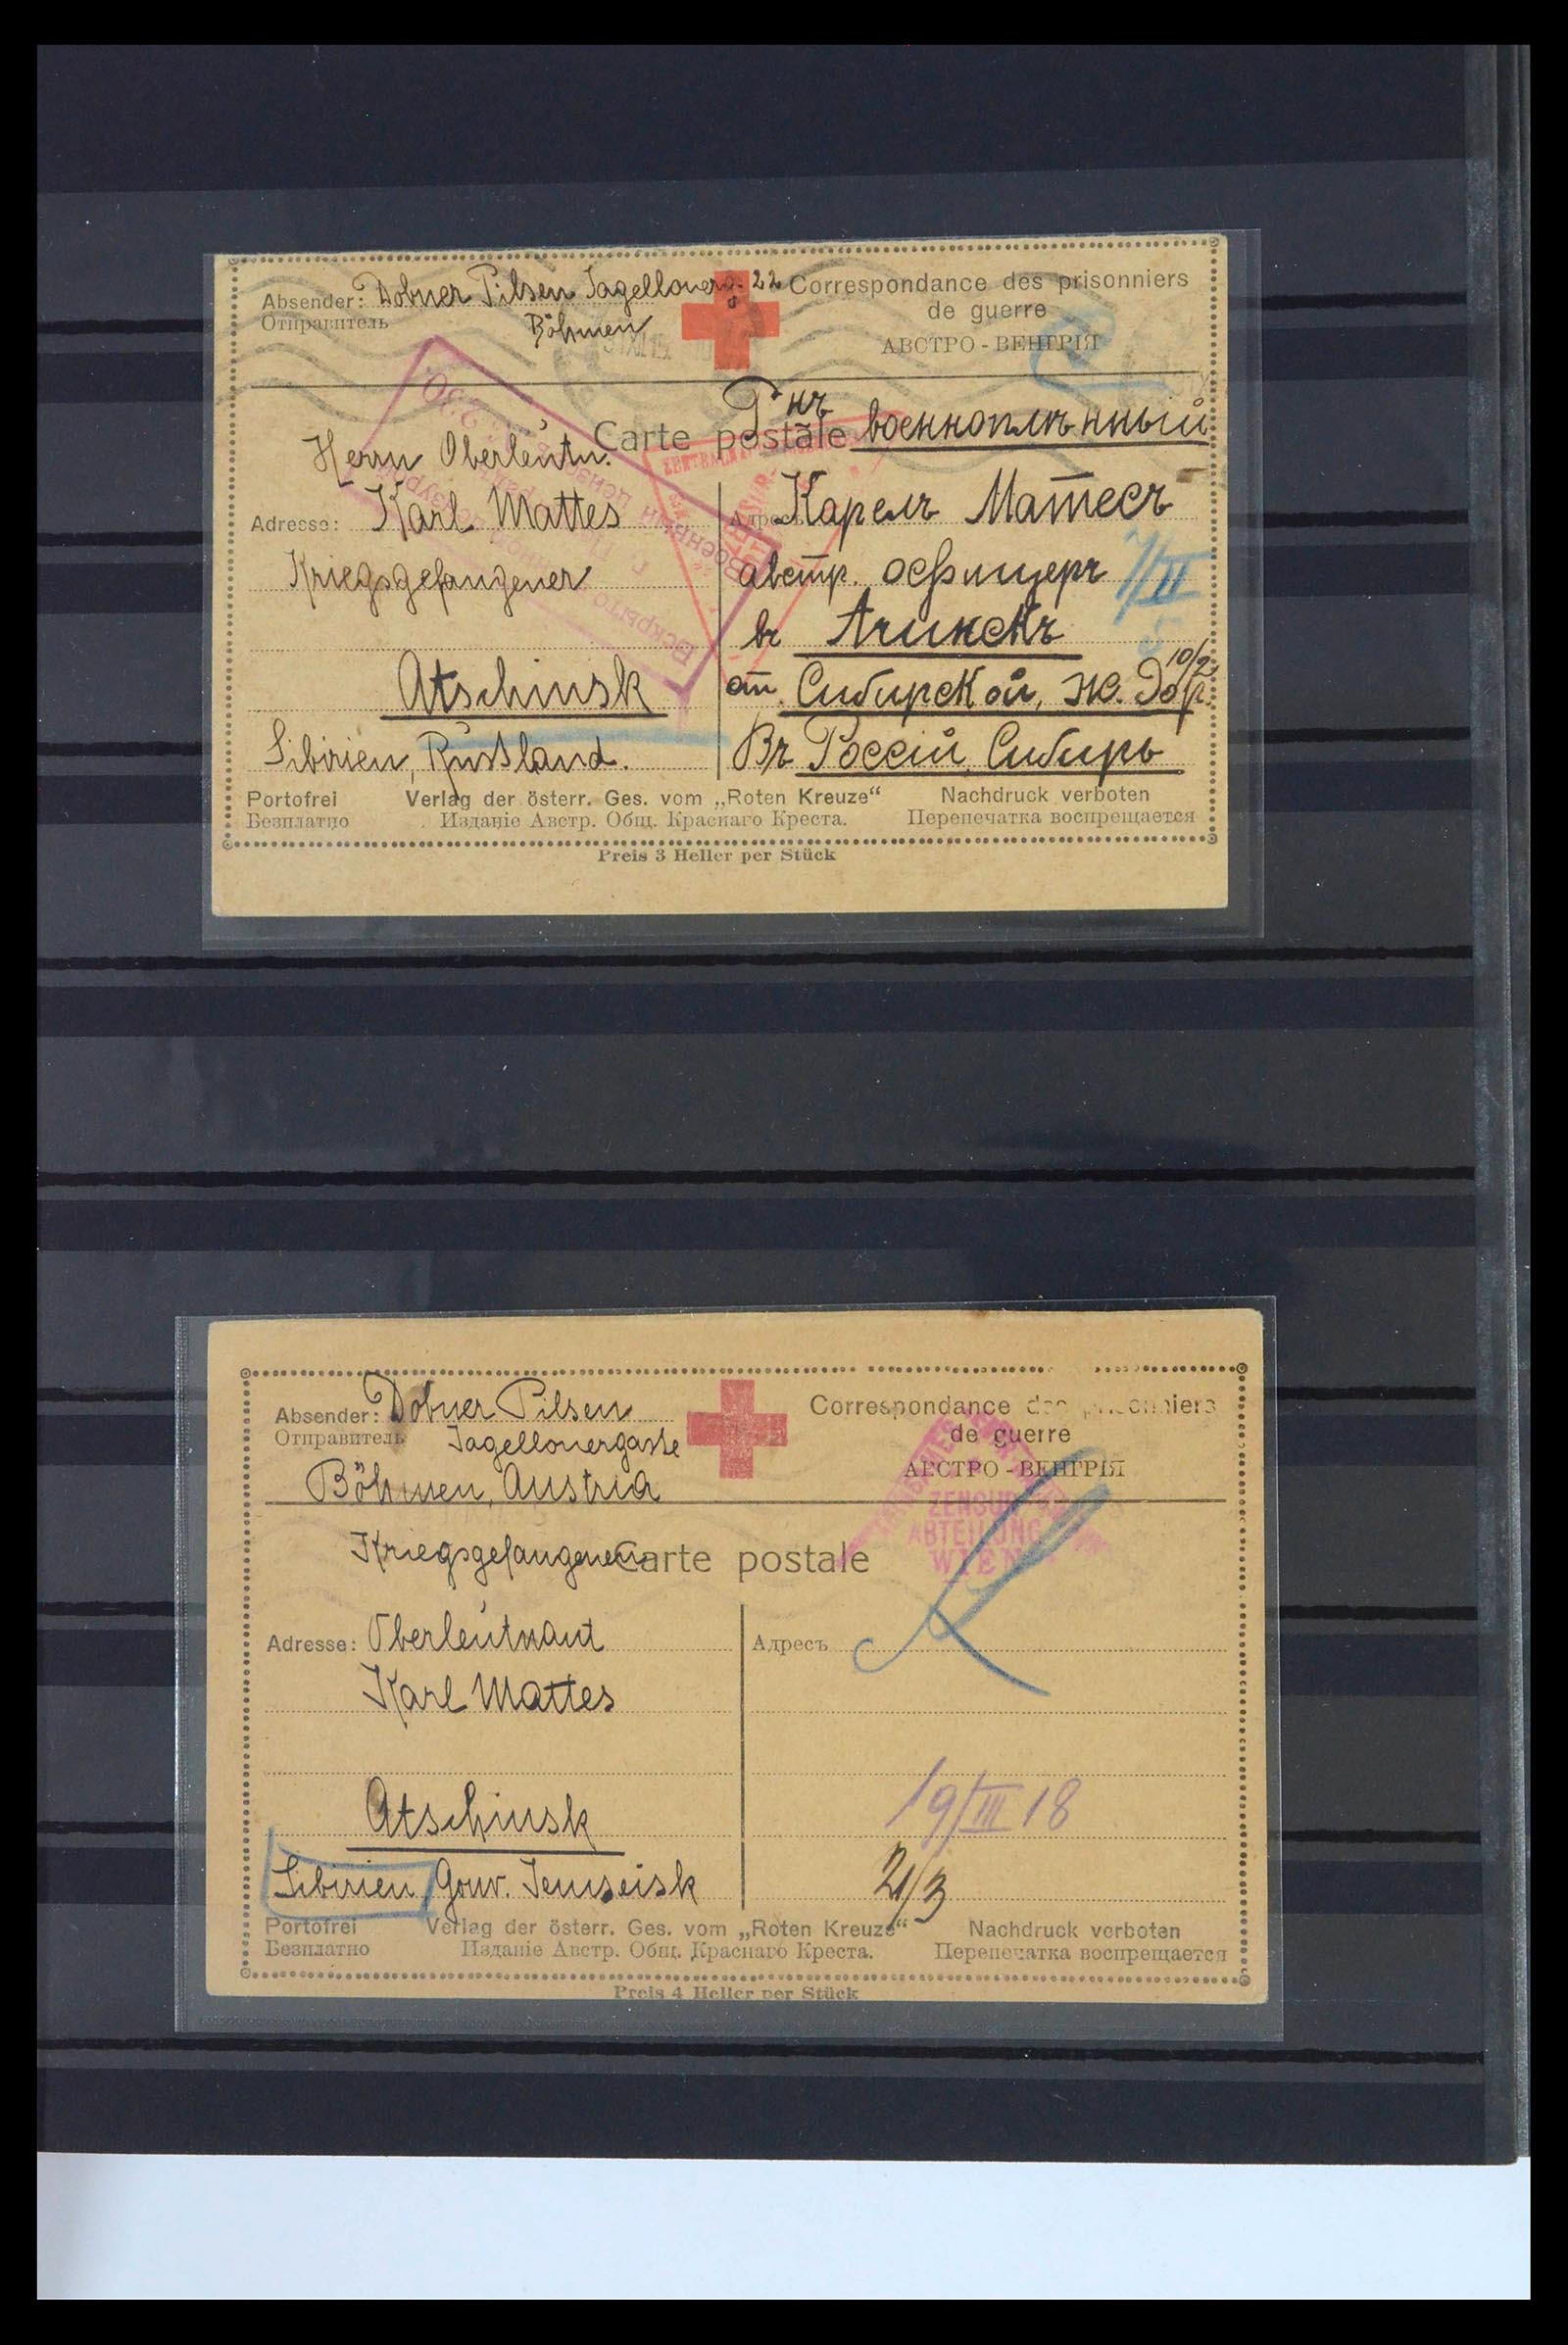 Absender: Dobner Pilsen Jagellonerg. 22
Отправитель
Böhmen
Correspondance des prisonniers
de guerre
АВСТРО - ВЕНГРІЯ
Carte postale
Г-нъ
военноплѣнный
Herrn Oberleutn.
Adresse: Karl Mattes
Kriegsgefangener
Atschinsk
Sibirien, Russland.
Адресъ Карелъ Матесъ
австр. офицеръ
7/II
въ Ачинскъ
10/2
ст. Сибирской, ж. Дор.
Въ Россіи, Сибирь
Portofrei Verlag der österr. Ges. vom „Roten Kreuze“ Nachdruck verboten
Безплатно Изданіе Австр. Общ. Краснаго Креста. Перепечатка воспрещается
Preis 3 Heller per Stück
Absender: Dobner Pilsen
Отправитель Jagellonergasse
Böhmen, Austria
Correspondance des prisonniers
de guerre
АВСТРО - ВЕНГРІЯ
ZENSUR
ABTEILUNG
WIEN
Kriegsgefangenen
Carte postale
Adresse: Oberleutnant
Karl Mattes
Atschinsk
Sibirien, Gouv. Jenisseisk
Адресъ
19/III 18
21/3
Portofrei Verlag der österr. Ges. vom „Roten Kreuze“ Nachdruck verboten
Безплатно Изданіе Австр. Общ. Краснаго Креста. Перепечатка воспрещается
Preis 4 Heller per Stück